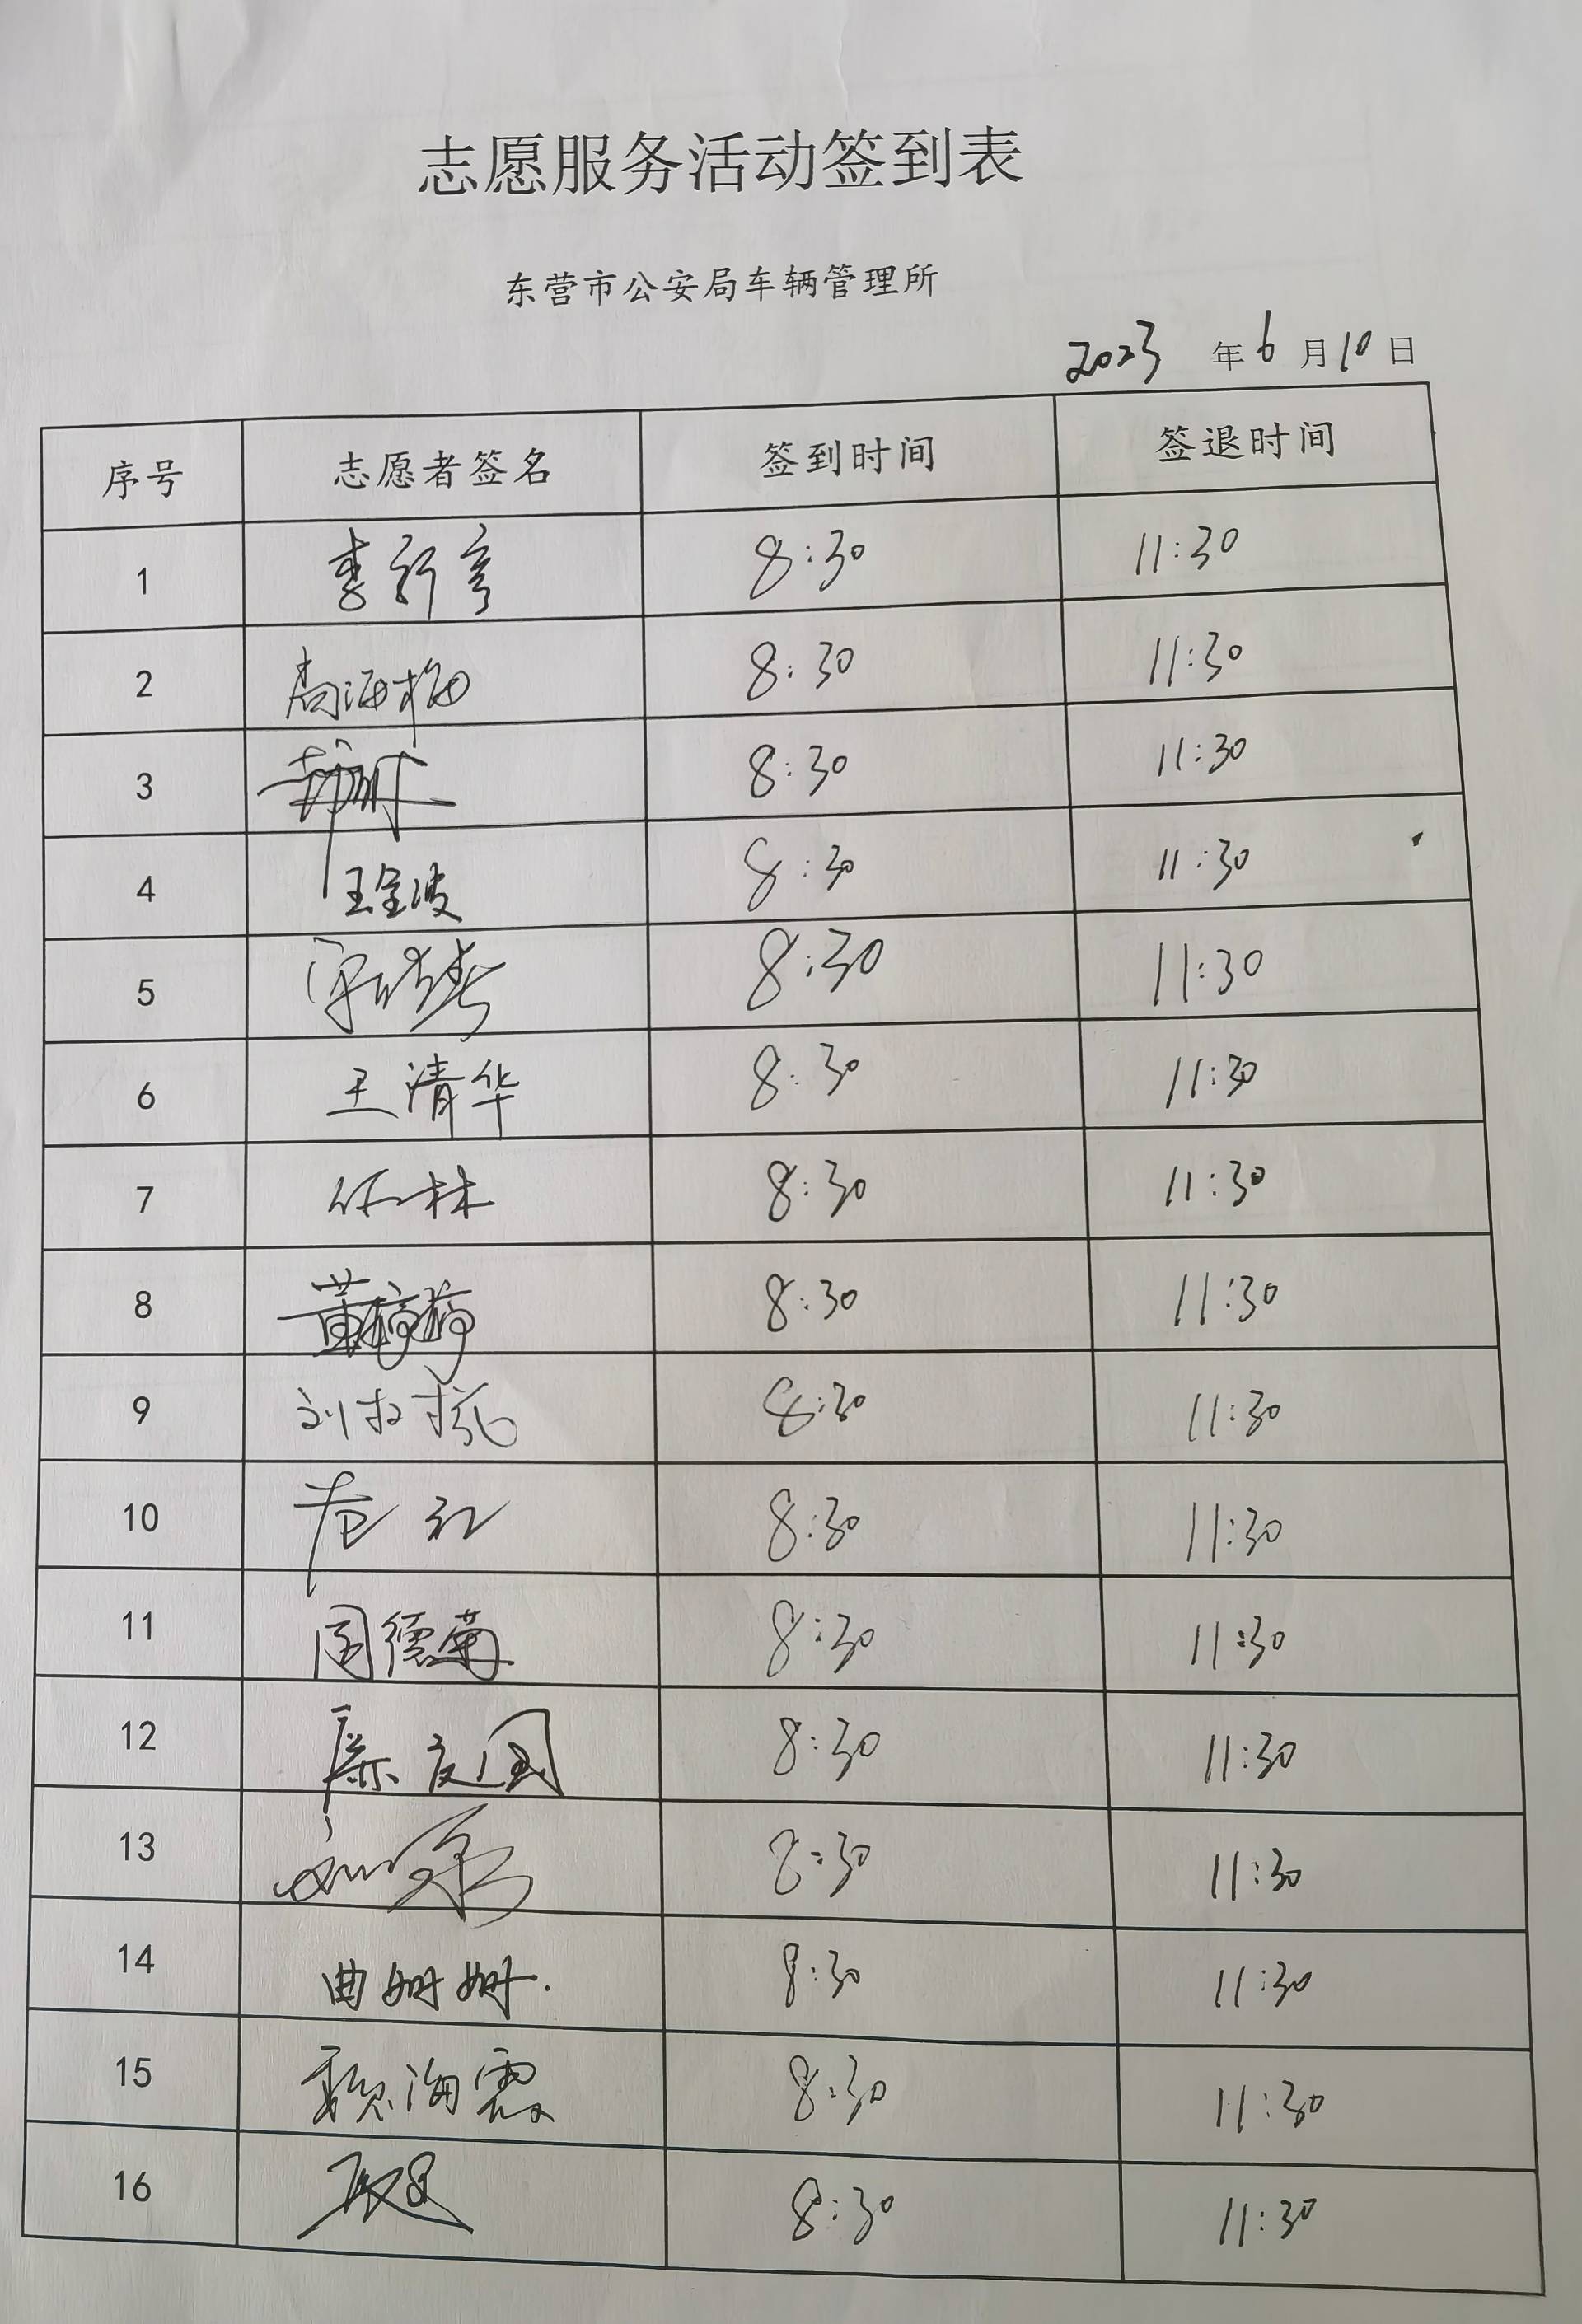 志愿服务活动签到表
东营市公安局车辆管理所
2023 年 6 月 10 日
序号 志愿者签名 签到时间 签退时间
1 李新亭 8:30 11:30
2 周海梅 8:30 11:30
3 8:30 11:30
4 王全波 8:30 11:30
5 8:30 11:30
6 王清华 8:30 11:30
7 任林 8:30 11:30
8 董婷婷 8:30 11:30
9 8:30 11:30
10 8:30 11:30
11 周德菊 8:30 11:30
12 8:30 11:30
13 8:30 11:30
14 曲姗姗. 8:30 11:30
15 海霞 8:30 11:30
16 8:30 11:30